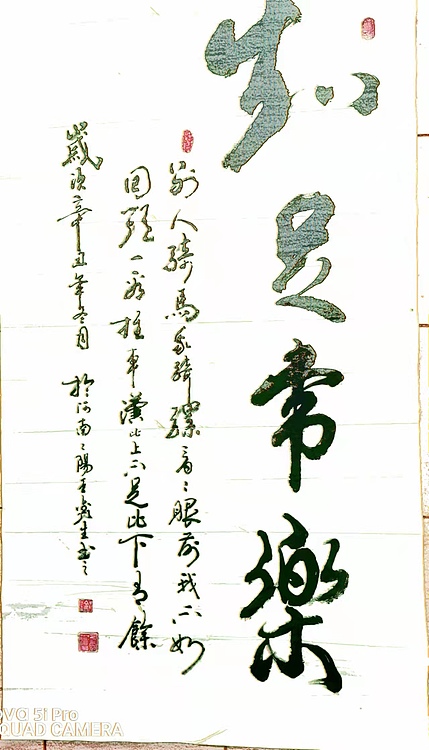 知足常樂
别人騎馬我騎騾看々眼前我不如
回頭一看推車漢比上不足比下有餘
歲次辛丑年冬月於河南々陽王生書之
VQ 5i Pro
QUAD CAMERA